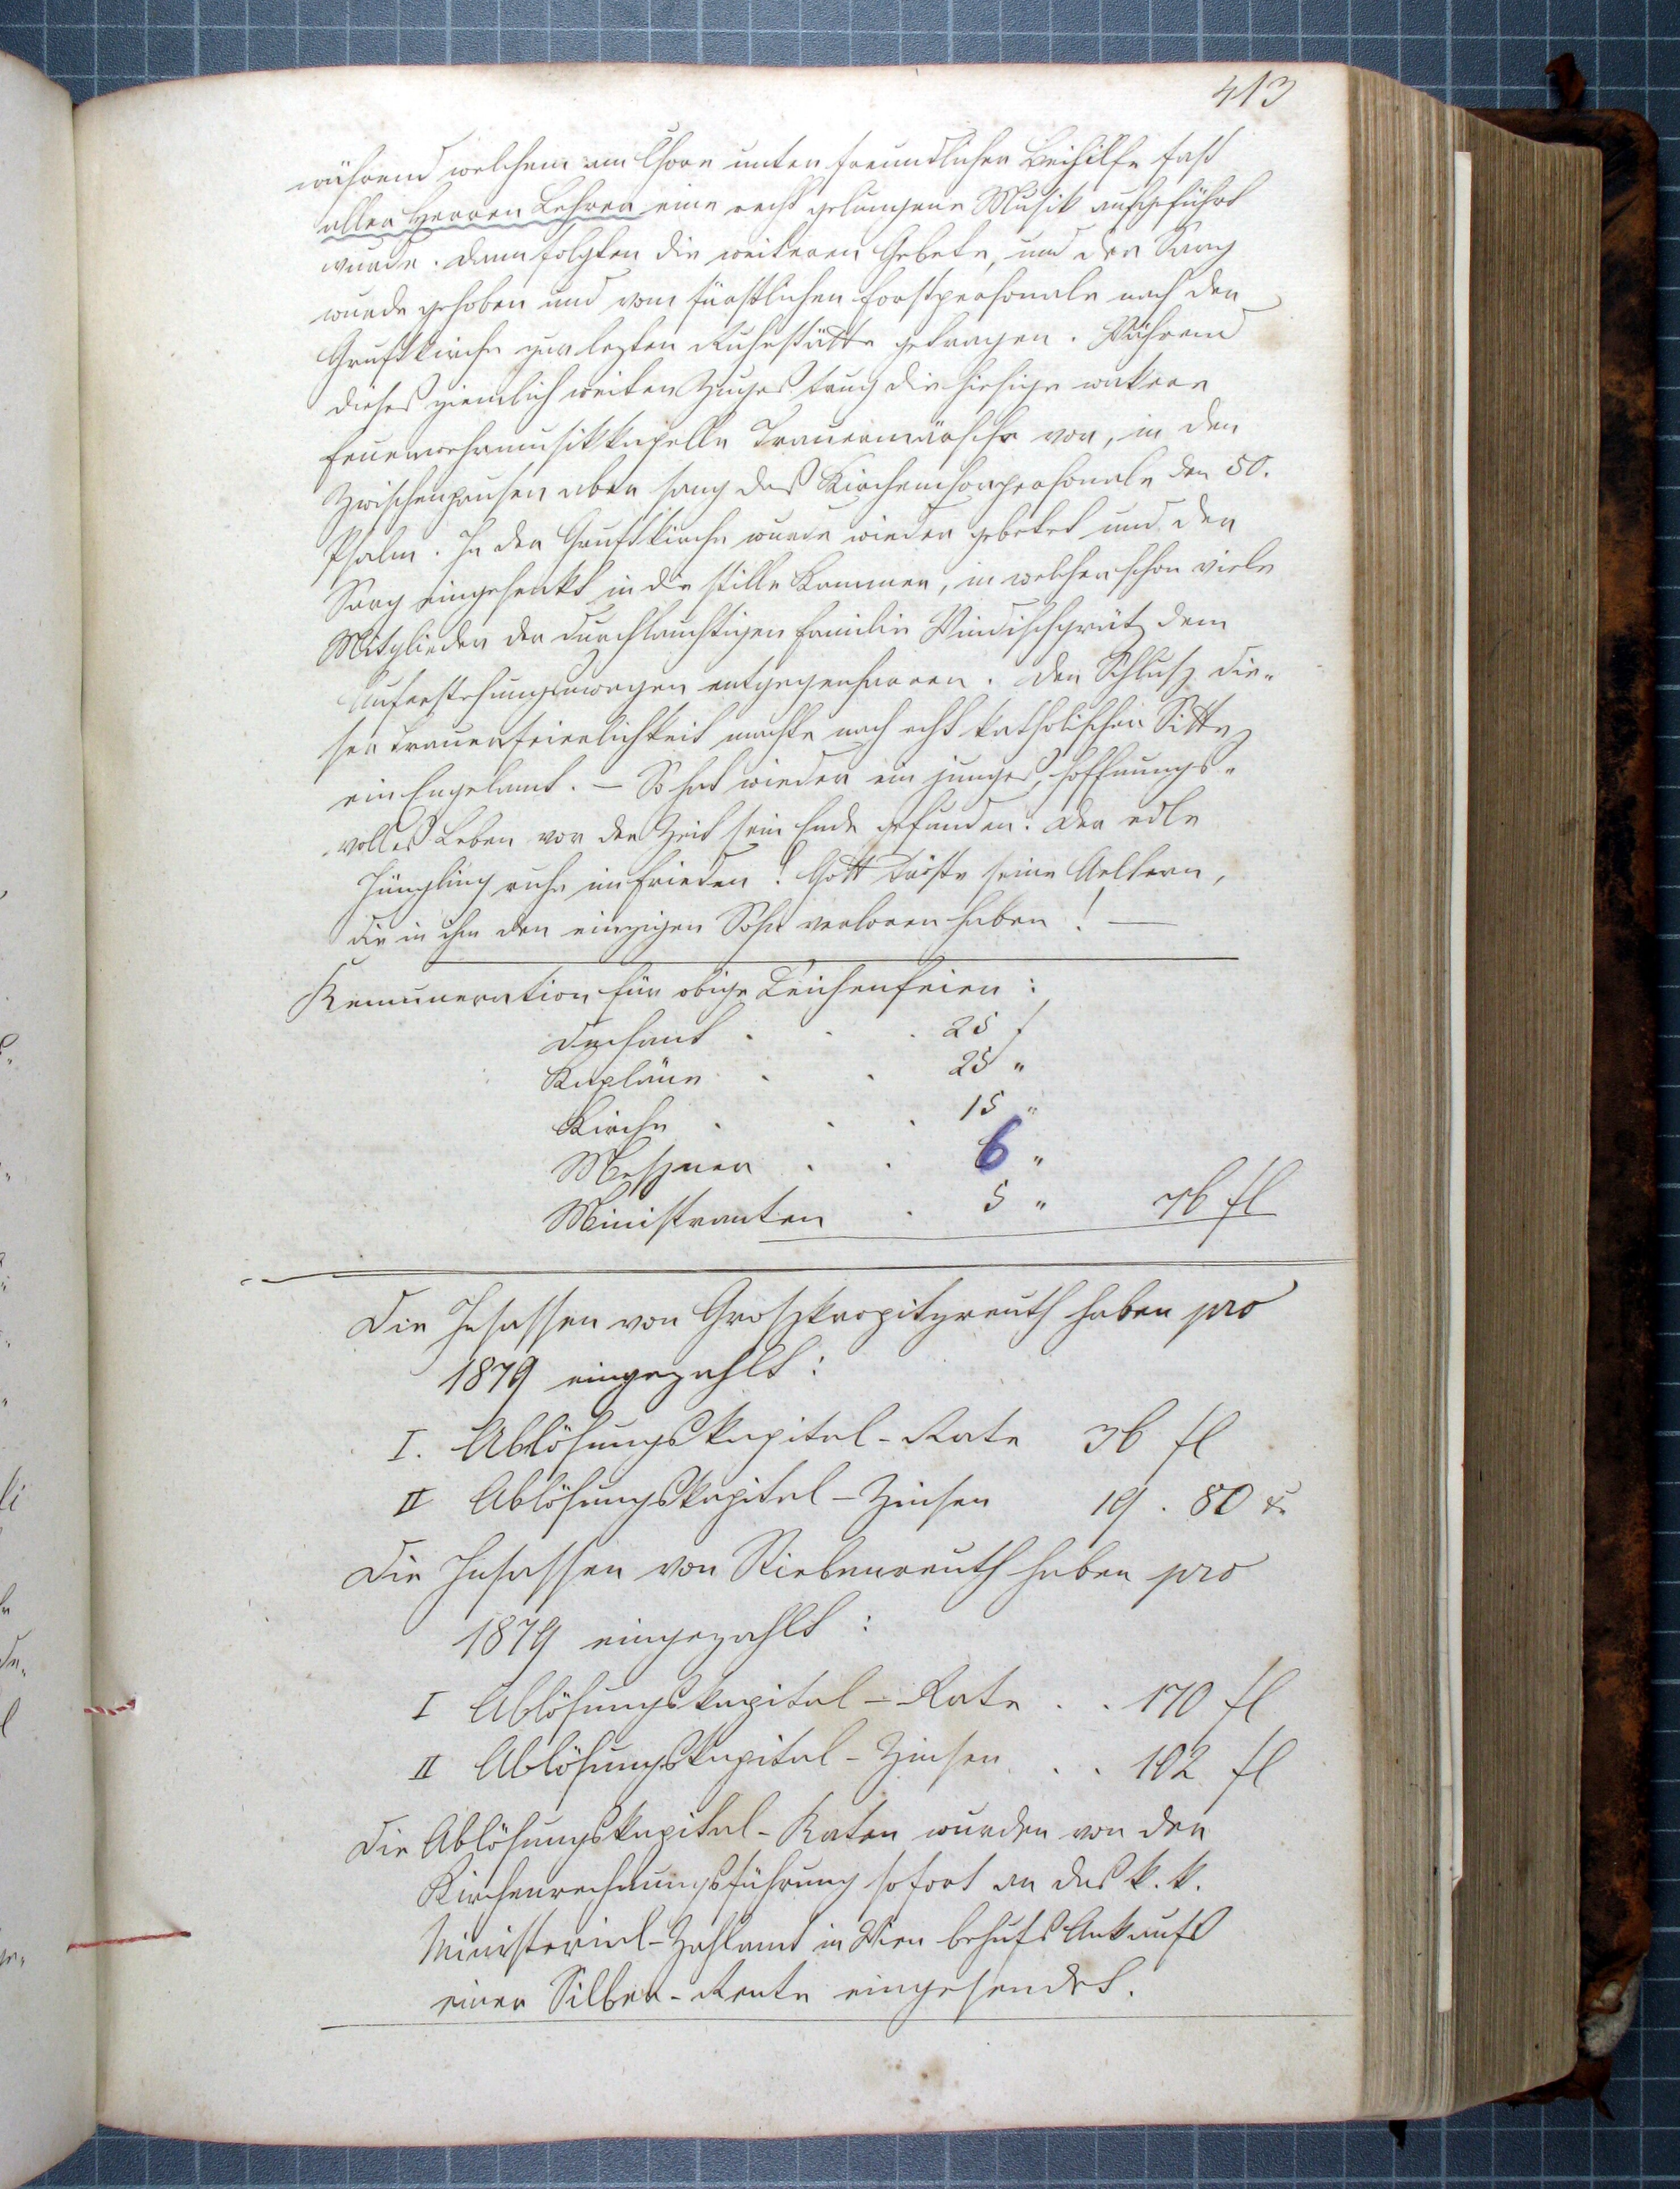 413
während welchem am Chore unter freundlicher Beihilfe fast
aller Herren Lehrer eine recht gelungene Musik aufgeführt
wurde. Dann folgten die weiteren Gebete, und der Sarg
wurde gehoben und vom fürstlichen Forstpersonale nach der
Gruftkirche zur lezten Ruhestätte getragen. Während
dieses ziemlich weiten Zuges trug die hiesige wakere
Feuerwehrmusikkapelle Trauermärsche vor, in den
Zwischenpausen aber sang das Kirchenchorpersonale den 50.
Psalm. In der Gruftkirche wurde wieder gebetet und der
Sarg eingesenkt in die stille Kammer, in welcher schon viele
Mitglieder der durchlauchtigen Familie Windischgrätz dem
Auferstehungsmorgen entgegenharren. Den Schlusz die-
ser Trauerfeierlichkeit machte nach echt katholischer Sitte
ein Engelamt. – So hat wieder ein junges, hoffnungs-
volles Leben vor der Zeit sein Ende gefunden. Der edle
Jüngling ruhe im Frieden! Gott tröste seine Aeltern,
die in ihm den einzigen Sohn verloren haben! —
Remuneration für obige Leichenfeier:
Dechant . . . 25 f
Kapläne . . 25 "
Kirche . . . 15 "
Meszner . . 6 "
Ministranten . 5 " 76 fl
Die Insassen von Groszkropitzreuth haben pro
1879 eingezahlt:
I. Ablösungskapital-Rate 36 fl
II Ablösungskapital-Zinsen 19 . 80 x
Die Insassen von Riebenreuth haben pro
1879 eingezahlt:
I Ablösungskapital-Rate . . 170 fl
II Ablösungskapital-Zinsen . . 102 fl
Die Ablösungskapital-Raten wurden von der
Kirchenrechnungsführung sofort an das k. k.
Ministerial-Zahlamt in Wien behufs Ankaufs
einer Silber-Rente eingesendet.